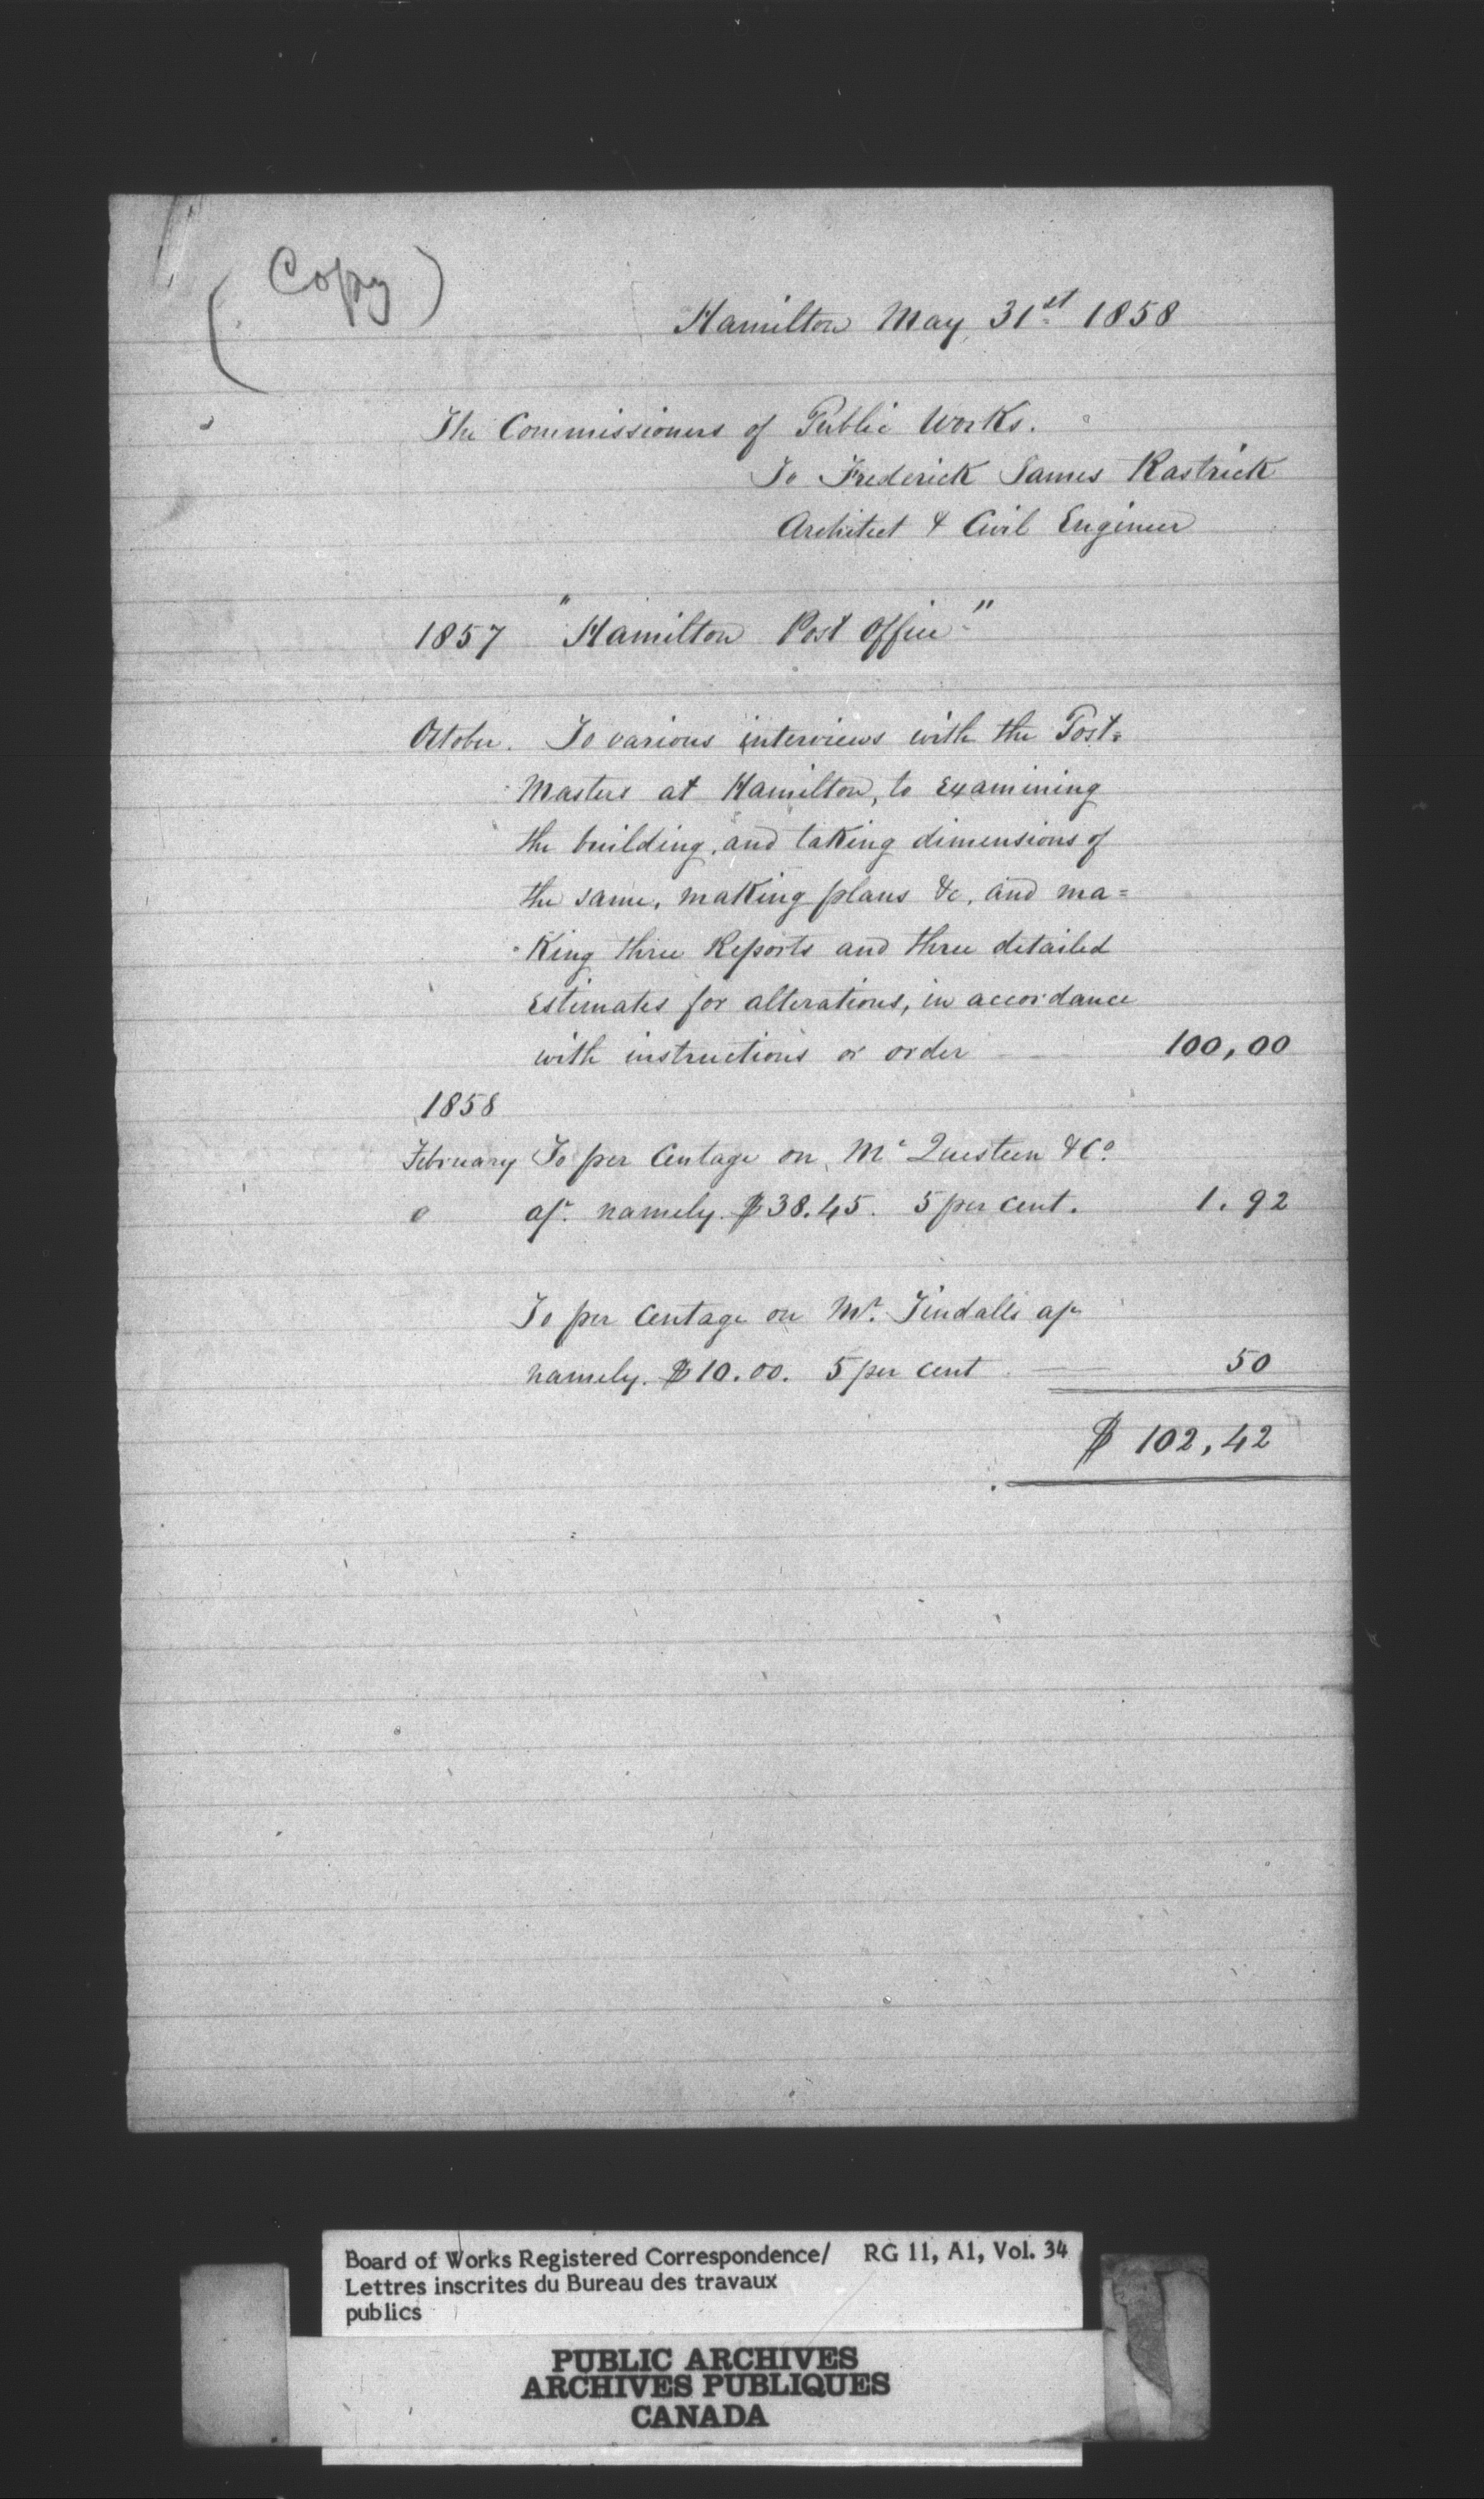 (Copy)
Hamilton May 31st 1858
The Commissioners of Public Works.
To Frederick James Rastrick
Architect & Civil Engineer
1857 "Hamilton Post Office"
October. To various interviews with the Post=
Masters at Hamilton, to Examining
the building, and taking dimensions of
the same, making plans &c, and ma=
King three Reports and three detailed
Estimates for alterations, in accordance
with instructions or order 100,00
1858
February To per Centage on Mc Questeen & Co
a/c. namely $38.45. 5 per cent. 1.92
To per Centage on Mr. Tindalls a/c
namely. $10.00. 5 per cent 50
$ 102,42
Board of Works Registered Correspondence/ RG 11, A1, Vol. 34
Lettres inscrites du Bureau des travaux
publics
PUBLIC ARCHIVES
ARCHIVES PUBLIQUES
CANADA